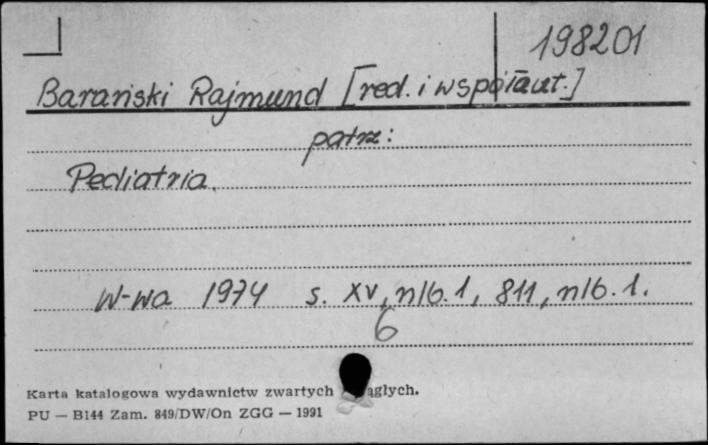 198201
Barański Rajmund [red. i współaut.]
patrz:
Pediatria.
W-wa 1974 s. XV, nlb. 1, 811, nlb. 1.
6
Karta katalogowa wydawnictw zwartych
PU — B144 Zam. 849/DW/On ZGG — 1991